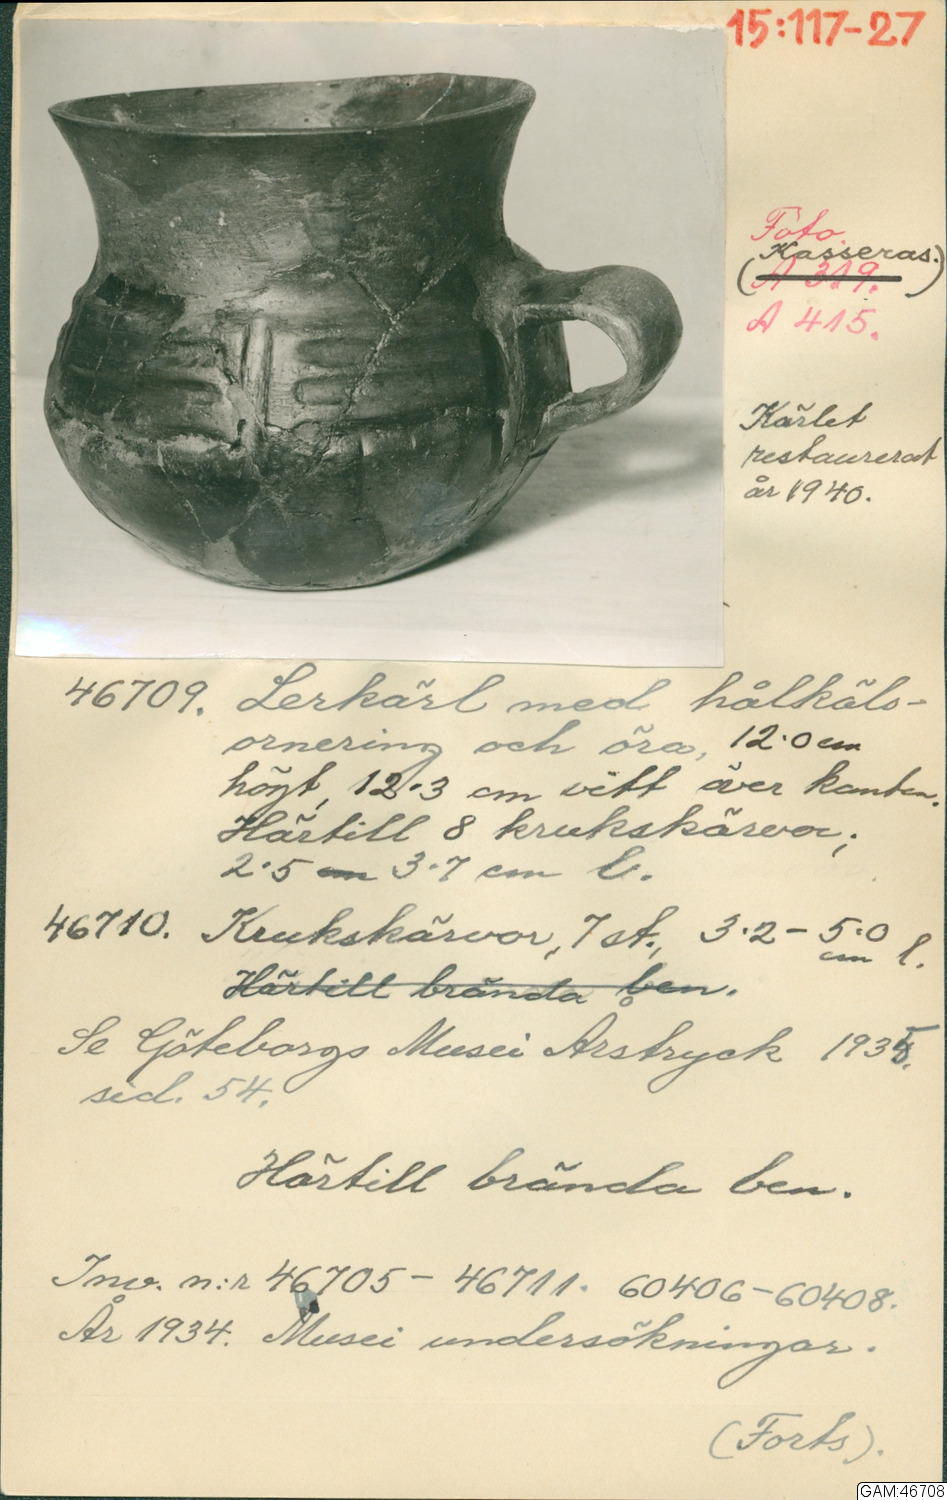 15:117-27
Foto.
Kasseras.
(A 319.)
A 415.
Kärlet
restaurerat
år 1940.
46709. Lerkärl med hålkäls-
ornering och öra, 12.0 cm
högt, 12.3 cm vitt över kanten.
Härtill 8 krukskärvor;
2.5 cm 3.7 cm l.
46710. Krukskärvor, 7 st., 3.2 - 5.0
cm l.
Härtill brända ben.
Se Göteborgs Musei Årstryck
sid. 54.
Härtill brända ben.
Inv. n:r 46705 - 46711. 60406-60408.
År 1934. Musei undersökningar.
(Forts).
GAM:46708